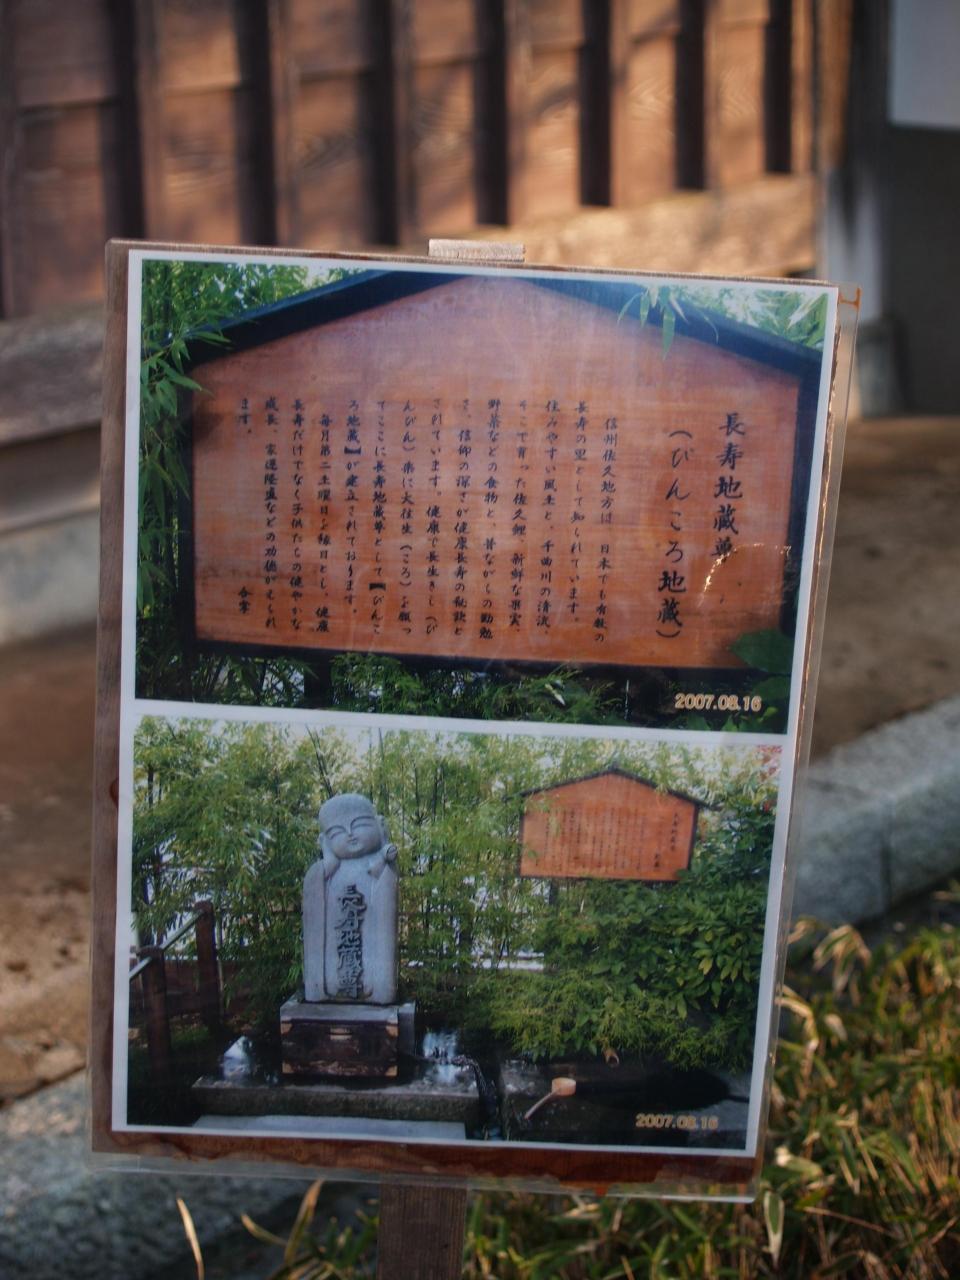 長寿地蔵尊
（ぴんころ地蔵）
信州佐久地方は、日本でも有数の
長寿の里として知られています。
住みやすい風土と、千曲川の清流、
そこで育った佐久鯉、新鮮な果実、
野菜などの食物と、昔ながらの勤勉
さ、信仰の深さが健康長寿の秘訣と
されています。健康で長生きし（ぴ
んぴん）楽に大往生（ころ）を願っ
てここに長寿地蔵尊として【ぴんこ
ろ地蔵】が建立されております。
毎月第二土曜日を縁日とし、健康
長寿だけでなく子供たちの健やかな
成長、家運隆盛などの功徳がえられ
ます。
合掌
2007.08.16
長寿地蔵尊
2007.08.16